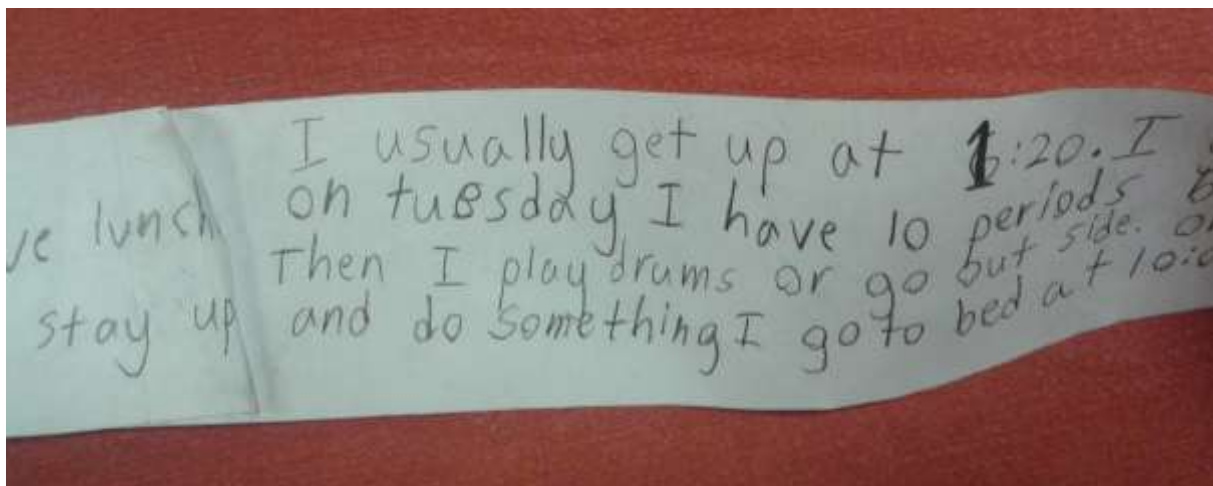 I usually get up at :20. I
lunch on tuesday I have 10 periods
Then I play drums or go out side.
stay up and do something I go to bed at